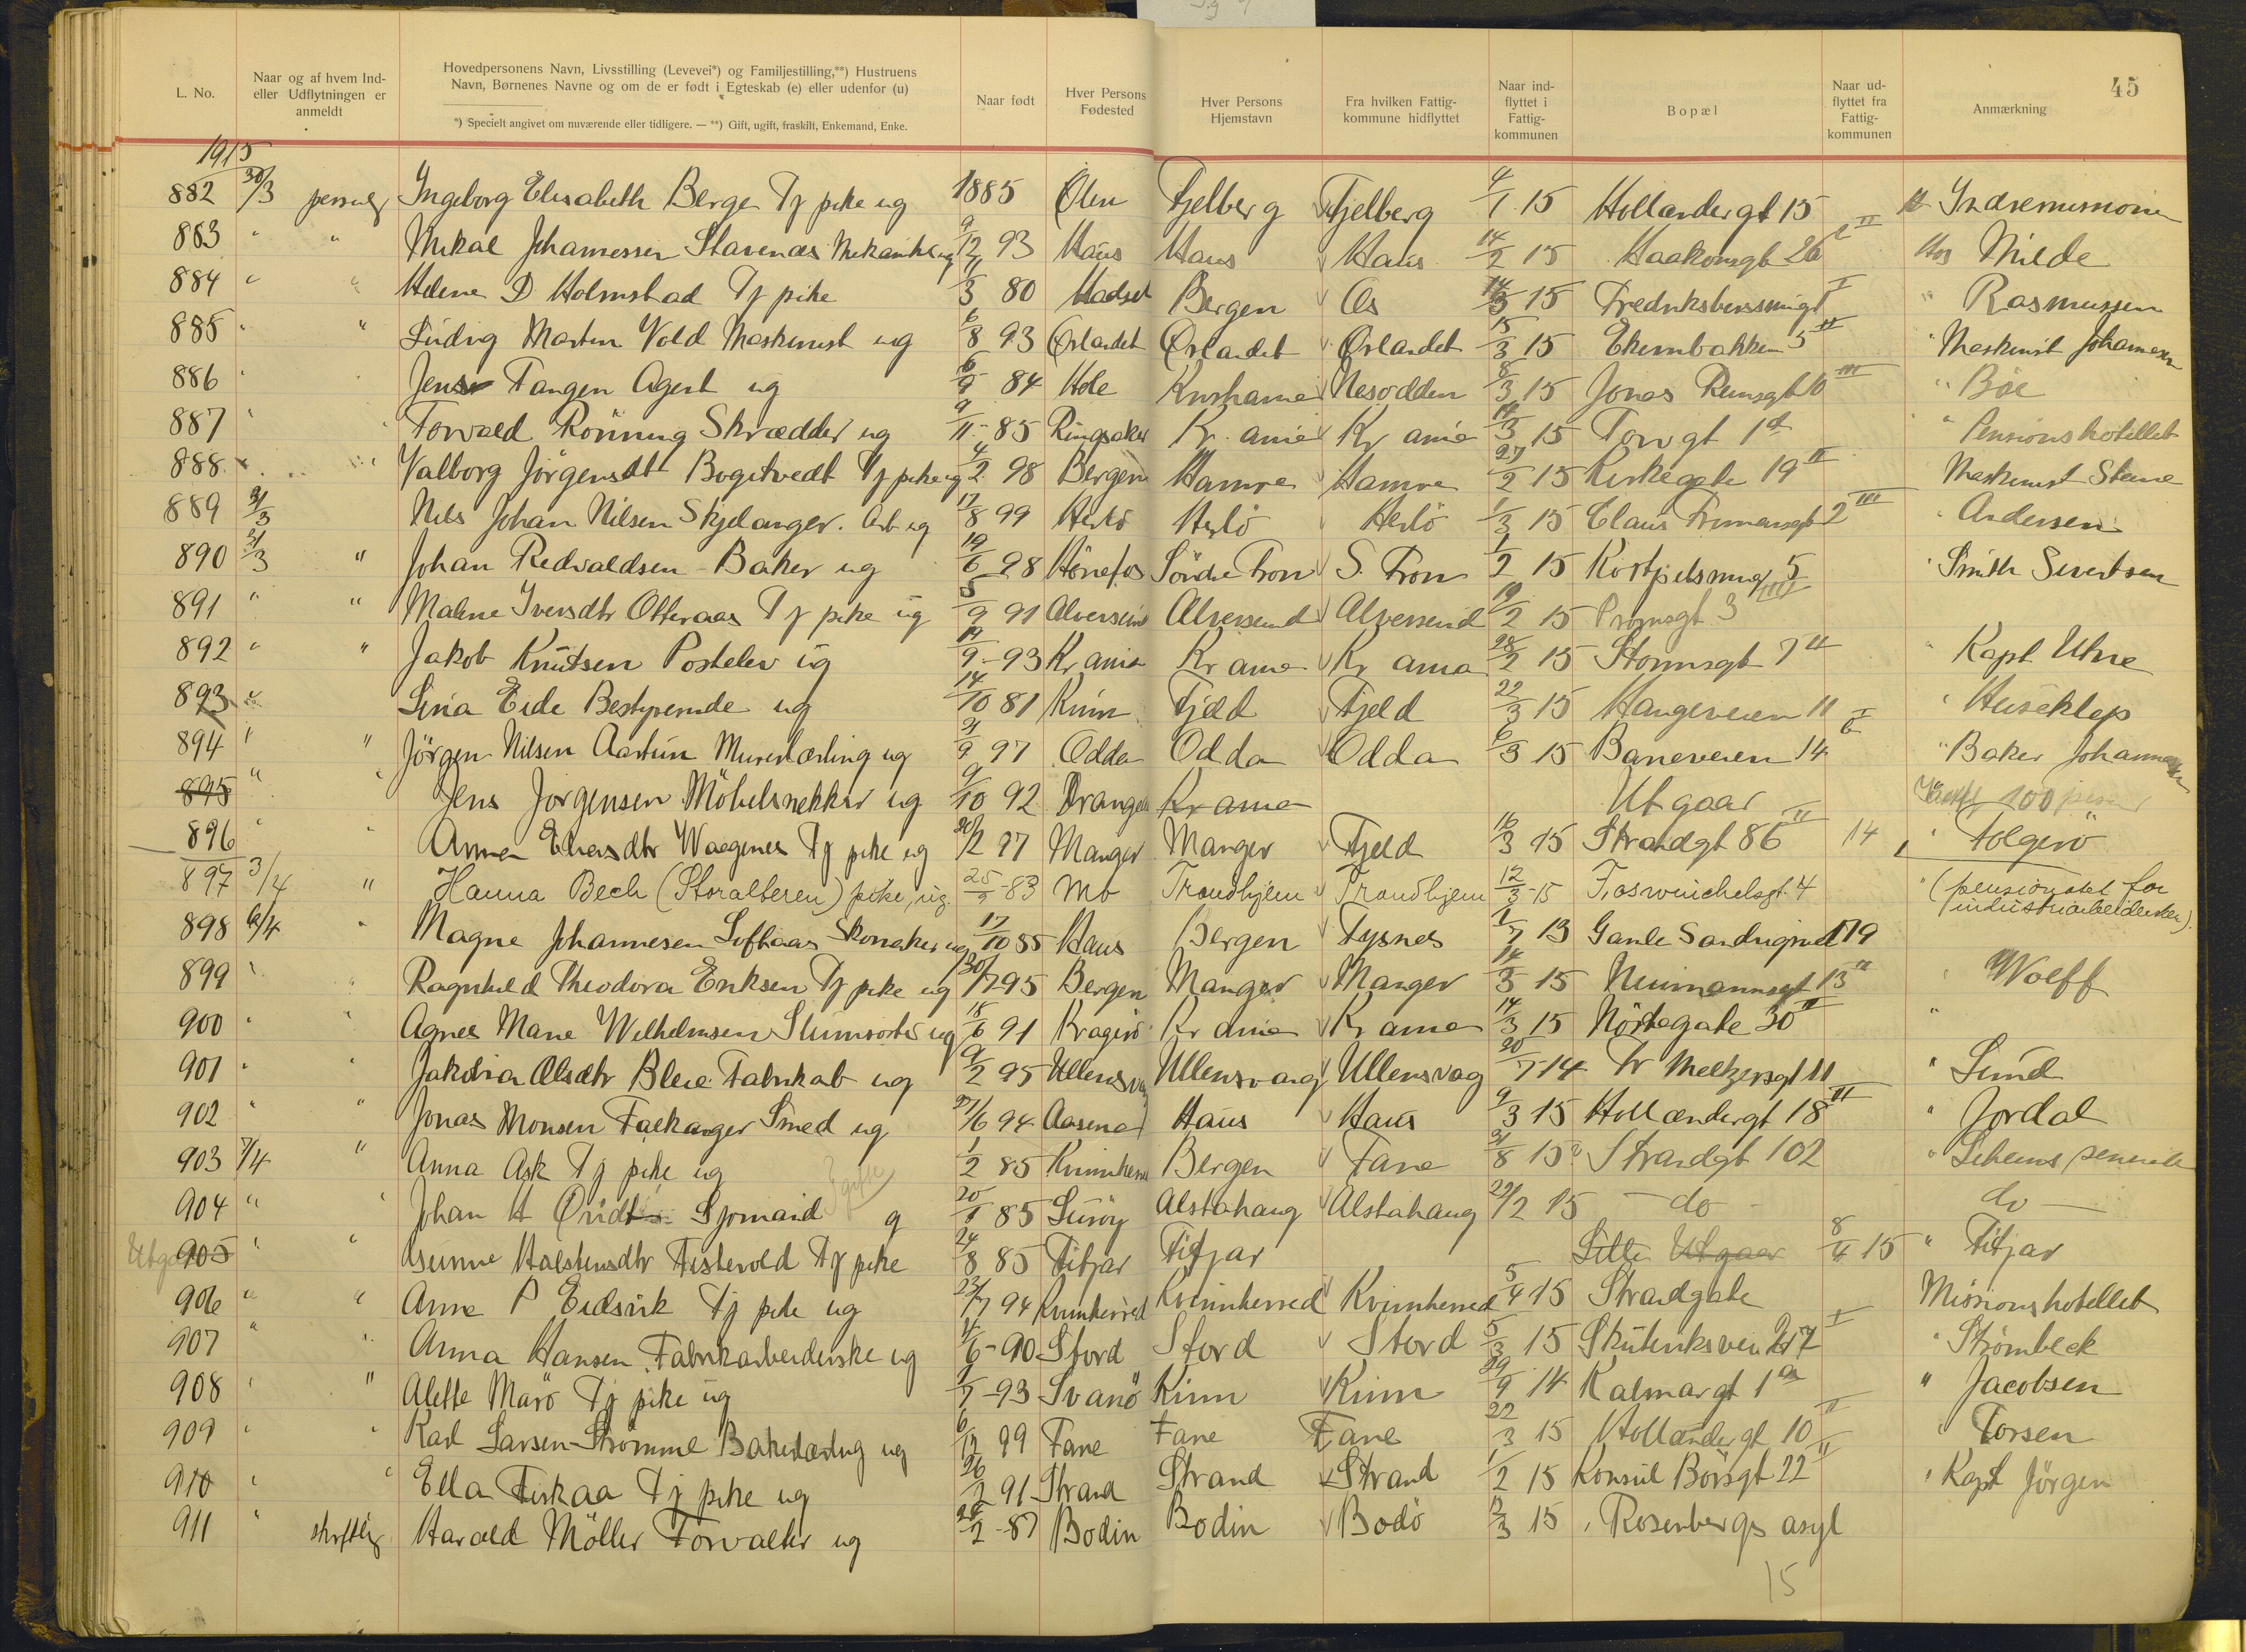 45
L. No.
Naar og af hvem Ind- eller Udflytningen er anmeldt
Hovedpersonens Navn, Livsstilling (Levevei*) og Familjestilling,**) Hustruens Navn, Børnenes Navne og om de er født i Egteskab (e) eller udenfor (u)
*) Specielt angivet om nuværende eller tidligere. — **) Gift, ugift, fraskilt, Enkemand, Enke.
Naar født
Hver Persons Fødested
Hver Persons Hjemstavn
Fra hvilken Fattig- kommune hidflyttet
Naar ind- flyttet i Fattig- kommunen
Bopæl
Naar ud- flyttet fra Fattig- kommunen
Anmærkning
1915
882 30/3 Ingeborg Elisabeth Berge Tj pike ug 1885 Ølen Fjelberg Fjelberg 4/1 15 Hollændergt 15
883 " " Mikal Johannessen Mekaniker ug 9/12 93 Haus Haus Haus 14/2 15 Haakonsgt 26 Hos Milde
884 " " Helene D Holmstad Tj pike 11/3 80 Hadsel Bergen Os 14/3 15 I " Rasmussen
885 " " Ludvig Martin Vold Maskinist ug 6/8 93 Ørlandet Ørlandet Ørlandet 15/3 15 Ekernbakken 5 II " Maskinist Johannesen
886 " Jens Tangen Agent ug 6/9 84 Hole Kristiania Nesodden 8/3 15 Jonas Reinsgt 10 III " Böe
887 " " Torvald Rönning Skrædder ug 9/11 85 Ringsaker Kr. ania Kr ania 14/3 15 Torvgt 1 a " Pensionshotellet
888 Valborg Jörgensdt Bogetvedt Tj pike ug 4/2 98 Bergen Hamre Hamre 27/2 15 Kirkegate 19 II Maskinist Stene
889 Nils Johan Nilsen Skjelanger. Arb ug 17/8 99 Herlö Herlö Herlö 1/3 15 2 III " Andersen
890 " Johan Redvaldsen Baker ug 19/6 98 Hönefos Söndre Fron S. Fron 1/2 15 5 " Smith Sivertsen
891 " " Malene Iversdtr Otteraas Tj pike ug 5/9 91 Alversund Alversund Alversund 19/2 15 Promsgt 3 III
892 " " Jakob Knutsen Postelev ug 19/9 93 Kr ania Kr ania Kr ania 28/2 15 Stormsgt 7 II " Kapt Utne
893 " Lina Eide Bestyrende ug 14/10 81 Kinn Fjeld Fjeld 22/3 15 Haugeveien 11 " Huseklep
894 " " Jörgen Nilsen Aartun Murerlærling ug 21/9 97 Odda Odda Odda 6/3 15 Baneveien 14 I " Baker Johannesen
895 " " Jens Jörgensen Möbelsnekker ug 9/10 92 Kr ania Utgaar
896 " " Anna Tj pike ug 97 Manger Manger Fjeld 16/3 15 Strandgt 86 II 14 " Folgerö
897 3/4 " Hanna Bech (Storalteren) pike, ug. 25/9-83 Mo Trondhjem Trondhjem 12/3-15 Foswinckelsgt. 4 " (pensionatet for industriarbeidersker)
898 6/4 " Magne Johannesen Lofthaas Skomaker ug 17/10 85 Haus Bergen Tysnes 1/7 13 Gamle Sandvigsvei 119
899 " " Ragnhild Theodora Eriksen Tj pike ug 95 Bergen Manger Manger 14/3 15 Neumannsgt 13 II " Wolff
900 " " Agnes Marie Wilhelmsen ug 18/6 91 Kragerö Kr ania Kr ania 14/3 15 Nöstegate 30 II "
901 " " Jakobia Olsdtr Bleie Fabrikarb ug 9/2 95 Ullensvang Ullensvang Ullensvag 20/7 14 Fr Meltzersgt 11 " Lund
902 " " Jonas Monsen Falkanger Smed ug 27/6 94 Haus Haus 9/3 15 Hollændergt 18 III " Jordal
903 7/4 " Anna Ask Tj pike ug 1/2 85 Kvinherred Bergen Fane 21/8 15? Strandgt 102
904 " " Johan A Sjømand g 20/1 85 Lurøy Alstahaug Alstahaug 22/2 15 - do - do -
905 " " Gunne Halstensdtr Tj pike 24/8 85 Fitjar Fitjar Utgaar 8/4 15 " Fitjar
906 " " Anne P Eidsvik Tj pike ug 23/7 94 Kvinherred Kvinnherred Kvinnherred 5/4 15 Strandgate Missionshotellet
907 " " Anna Hansen Fabrikarbeiderske ug 14/6-90 Stord Stord Stord 5/3 15 Skuteviksvei 27 I " Strömbeck
908 " " Alette Marö Tj pike ug 9/7-93 Svanö Kinn Kinn 29/9 14 Kalmargt 1 a " Jacobsen
909 " " Karl Larsen-Strömme Bakerlærling ug 6/12 99 Fane Fane Fane 22/3 15 Hollændergt 10 II " Torsen
910 " " Ella Fiskaa Tj pike ug 26/2 91 Strand Strand Strand 1/2 15 Konsul Börsgt 22 II " Kapt Jörgen
911 " skriftlig Harald Möller Forvalter ug 28/2-87 Bodin Bodin Bodö 12/3 15 Rosenbergs asyl
15